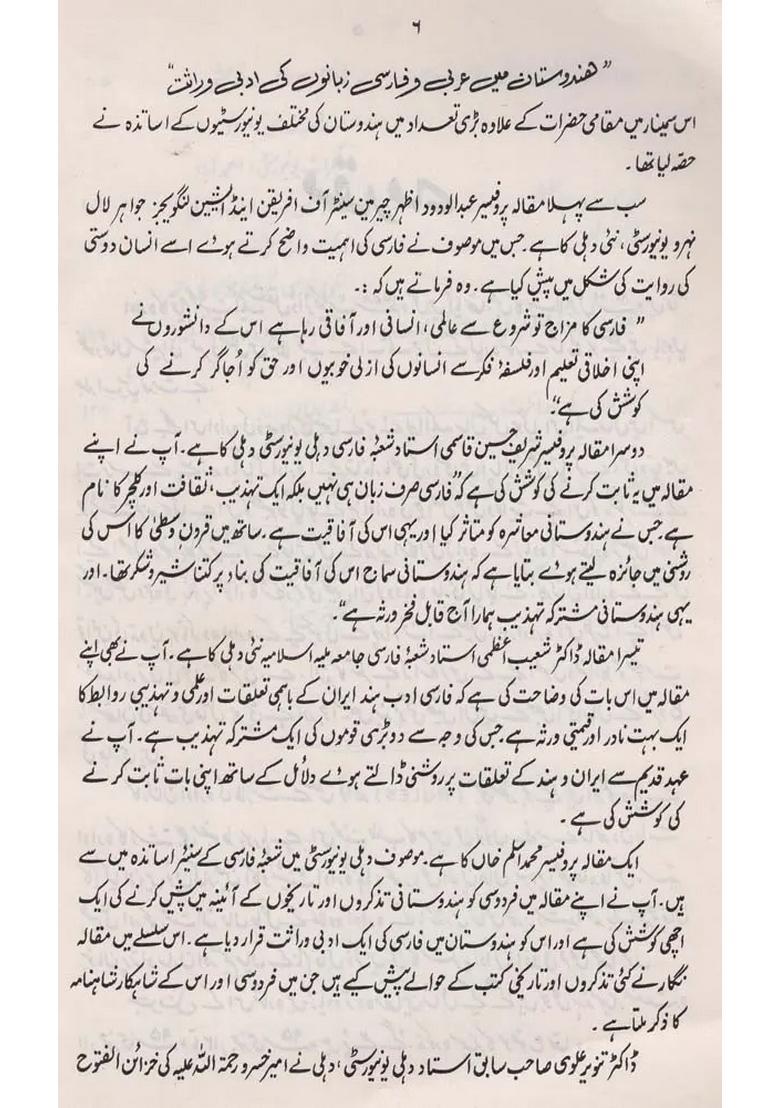 ٦
”ہندوستان میں عربی و فارسی زبانوں کی ادبی وراثت“
اس سمینار میں مقامی حضرات کے علاوہ بڑی تعداد میں ہندوستان کی مختلف یونیورسٹیوں کے اساتذہ نے
حصّہ لیا تھا۔
سب سے پہلا مقالہ پروفیسر عبدالودود اظہر چیرمین سینٹر آف افریقن اینڈ ایشین لنگویجز جواہر لال
نہرو یونیورسٹی، نئی دہلی کا ہے۔ جس میں موصوف نے فارسی کی اہمیت واضح کرتے ہوے اسے انسان دوستی
کی روایت کی شکل میں پیش کیا ہے۔ وہ فرماتے ہیں کہ :۔
” فارسی کا مزاج تو شروع سے عالمی، انسانی اور آفاقی رہا ہے اس کے دانشوروں نے
اپنی اخلاقی تعلیم اور فلسفۂ فکر سے انسانوں کی ازلی خوبیوں اور حق کو اُجاگر کرنے کی
کوشش کی ہے“۔
دوسرا مقالہ پروفیسر شریف حسین قاسمی استاد شعبۂ فارسی دہلی یونیورسٹی دہلی کا ہے۔ آپ نے اپنے
مقالہ میں یہ ثابت کرنے کی کوشش کی ہے کہ ”فارسی صرف زبان ہی نہیں بلکہ ایک تہذیب، ثقافت اور کلچر کا نام
ہے جس نے ہندوستانی معاشرہ کو متاثر کیا اور یہی اس کی آفاقیت ہے۔ ساتھ میں قرون وسطیٰ کا اس کی
روشنی میں جائزہ لیتے ہوے بتایا ہے کہ ہندوستانی سماج اس کی آفاقیت کی بناد پر کتنا شیر و شکر تھا۔ اور
یہی ہندوستانی مشترکہ تہذیب ہمارا آج قابل فخر ورثہ ہے“۔
تیسرا مقالہ ڈاکٹر شعیب اعظمی استاد شعبۂ فارسی جامعہ ملیہ اسلامیہ نئی دہلی کا ہے۔ آپ نے بھی اپنے
مقالہ میں اس بات کی وضاحت کی ہے کہ فارسی ادب ہند ایران کے باہمی تعلقات اور علمی و تہذیبی روابط کا
ایک بہت نادر اور قیمتی ورثہ ہے۔ جس کی وجہ سے دو بڑی قوموں کی ایک مشترکہ تہذیب ہے۔ آپ نے
عہد قدیم سے ایران و ہند کے تعلقات پر روشنی ڈالتے ہوے دلائل کے ساتھ اپنی بات ثابت کرنے
کی کوشش کی ہے۔
ایک مقالہ پروفیسر محمد اسلم خاں کا ہے۔ موصوف دہلی یونیورسٹی میں شعبۂ فارسی کے سنیئر اساتذہ میں سے
ہیں۔ آپ نے اپنے مقالہ میں فردوسی کو ہندوستانی تذکروں اور تاریخوں کے آئینہ میں پیش کرنے کی ایک
اچھی کوشش کی ہے اور اس کو ہندوستان میں فارسی کی ایک ادبی وراثت قرار دیا ہے۔ اس سلسلے میں مقالہ
نگار نے کئی تذکروں اور تاریخی کتب کے حوالے پیش کیے ہیں جن میں فردوسی اور اس کے شاہکار شاہنامہ
کا ذکر ملتا ہے۔
ڈاکٹر تنویر علوی صاحب سابق استاد دہلی یونیورسٹی، دہلی نے امیر خسرو رحمۃ اللہ علیہ کی خزائن الفتوح